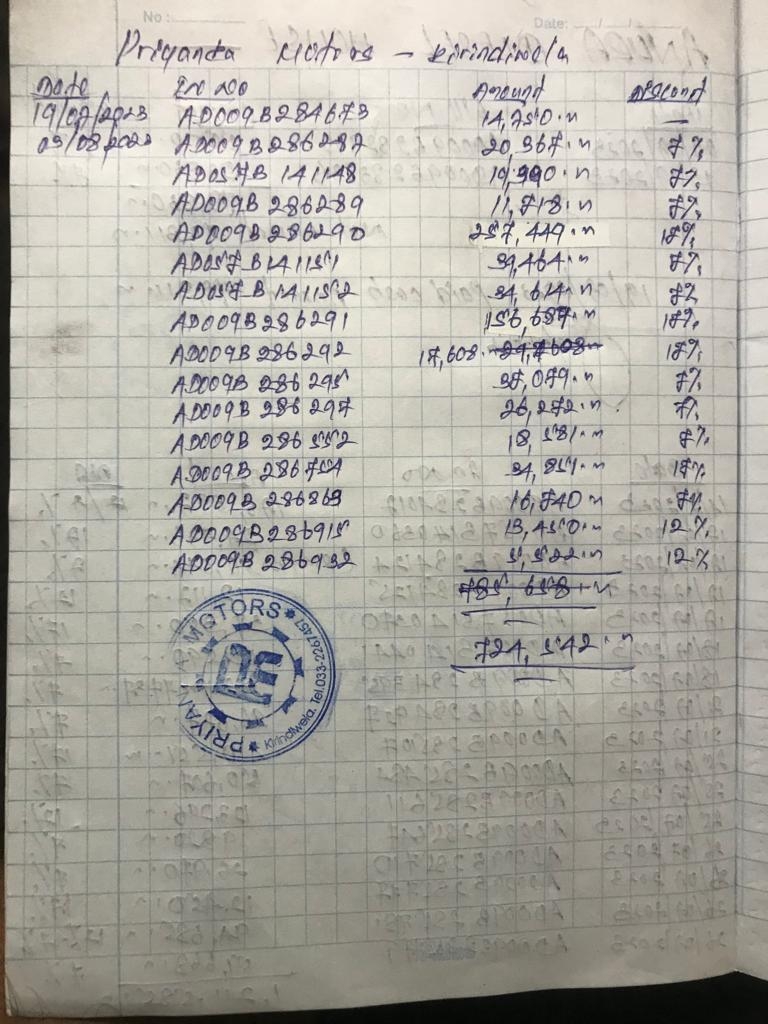 No : Date: / /
Priyanka Motors – Kirindiwela
Date In No Amount Discount
19/07/2023 AD009B284673 14,750.n —
03/08/2023 AD009B286287 20,367.n 7%
AD057B 141148 19,990.n 7%
AD009B 286289 11,718.n 7%
AD009B 286290 257,449.n 17%
AD057B141151 39,464.n 7%
AD057B 141152 34,614.n 7%
AD009B286291 156,687.n 17%
AD009B 286292 17,608. 29,7608.n 17%
AD009B 286295 37,079.n 7%
AD009B 286297 26,272.n 7%
AD009B 286552 18,581.n 7%
AD009B 286754 34,851.n 17%
AD009B 286869 16,740.n 7%
AD009B286915 13,450.n 12%
AD009B 286932 5,522.n 12%
785,658.n
724,542.n
PRIYANKA MOTORS
Kirindiwela. Tel.033-2267457